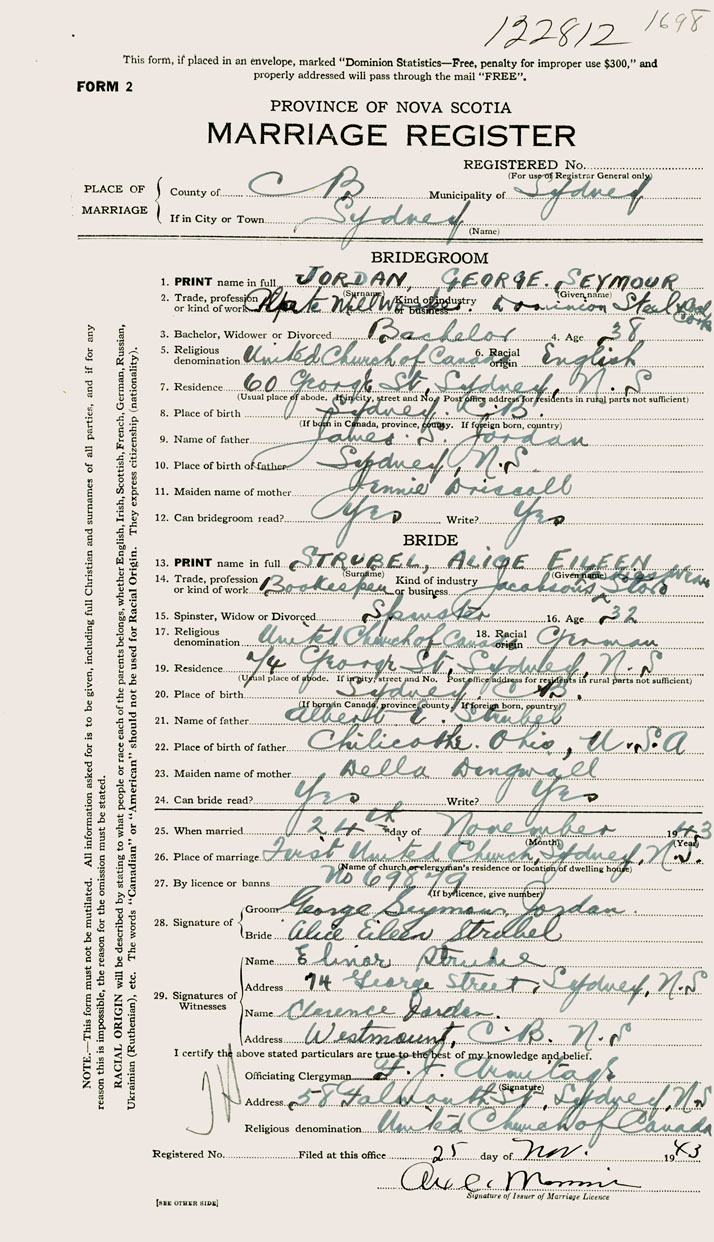 132812 1698
This form, if placed in an envelope, marked "Dominion Statistics—Free, penalty for improper use $300," and
properly addressed will pass through the mail "FREE".
FORM 2
PROVINCE OF NOVA SCOTIA
MARRIAGE REGISTER
REGISTERED No.
(For use of Registrar General only)
PLACE OF MARRIAGE
County of C B Municipality of Sydney
If in City or Town Sydney
(Name)
BRIDEGROOM
1. PRINT name in full JORDAN, GEORGE. SEYMOUR
(Surname) (Given name)
2. Trade, profession or kind of work Mill Kind of industry or business Dominion Steel and Coke
3. Bachelor, Widower or Divorced Bachelor 4. Age 38
5. Religious denomination United Church of Canada 6. Racial origin English
7. Residence 60 George St, Sydney, N. S
(Usual place of abode. If in city, street and No. Post office address for residents in rural parts not sufficient)
8. Place of birth Sydney. C. B.
(If born in Canada, province, county. If foreign born, country)
9. Name of father James S. Jordan
10. Place of birth of father Sydney, N. S
11. Maiden name of mother Jennie Driscoll
12. Can bridegroom read? Yes Write? Yes
BRIDE
13. PRINT name in full STRUBEL, ALICE EILEEN
(Surname) (Given name)
14. Trade, profession or kind of work Bookeeper Kind of industry or business Jacobsons Ladies Wear Store
15. Spinster, Widow or Divorced Spinster 16. Age 32
17. Religious denomination United Church of Canada 18. Racial origin German
19. Residence 74 George St, Sydney, N. S
(Usual place of abode. If in city, street and No. Post office address for residents in rural parts not sufficient)
20. Place of birth Sydney C. B.
(If born in Canada, province, county. If foreign born, country)
21. Name of father Albert E. Strubel
22. Place of birth of father Chilicothe. Ohio, U. S. A
23. Maiden name of mother Della Dingwall
24. Can bride read? Yes Write? Yes
25. When married 24th day of November 1943
(Month) (Year)
26. Place of marriage First United Church, Sydney, N. S.
(Name of church or clergyman's residence or location of dwelling house)
27. By licence or banns No 69879
(If by licence, give number)
28. Signature of
Groom George Seymour Jordan.
Bride Alice Eileen Strubel
29. Signatures of Witnesses
Name Elinor Strubel
Address 74 George Street, Sydney, N. S
Name Clarence Jordan.
Address Westmount, C. B. N. S
I certify the above stated particulars are true to the best of my knowledge and belief.
Officiating Clergyman F. J. Armitage
(Signature)
Address 58 Falmouth St, Sydney, N. S
Religious denomination United Church of Canada
Registered No. Filed at this office 25 day of Nov. 1943
Signature of Issuer of Marriage Licence
[SEE OTHER SIDE]
NOTE.—This form must not be mutilated. All information asked for is to be given, including full Christian and surnames of all parties, and if for any
reason this is impossible, the reason for the omission must be stated.
RACIAL ORIGIN will be described by stating to what people or race each of the parents belongs, whether English, Irish, Scottish, French, German, Russian,
Ukrainian (Ruthenian), etc. The words "Canadian" or "American" should not be used for Racial Origin. They express citizenship (nationality).